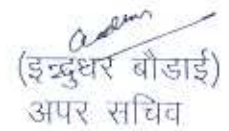 (इन्दुधर बौडाई)
अपर सचिव